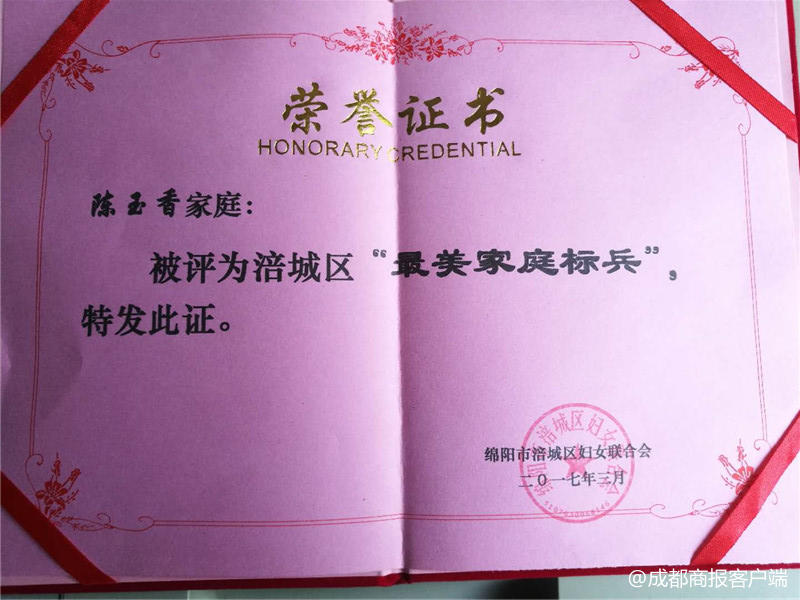 荣誉证书
HONORARY CREDENTIAL
陈玉香家庭：
被评为涪城区“最美家庭标兵”，
特发此证。
绵阳市涪城区妇女联合会
绵阳市涪城区妇女联合会
二〇一七年三月
@成都商报客户端